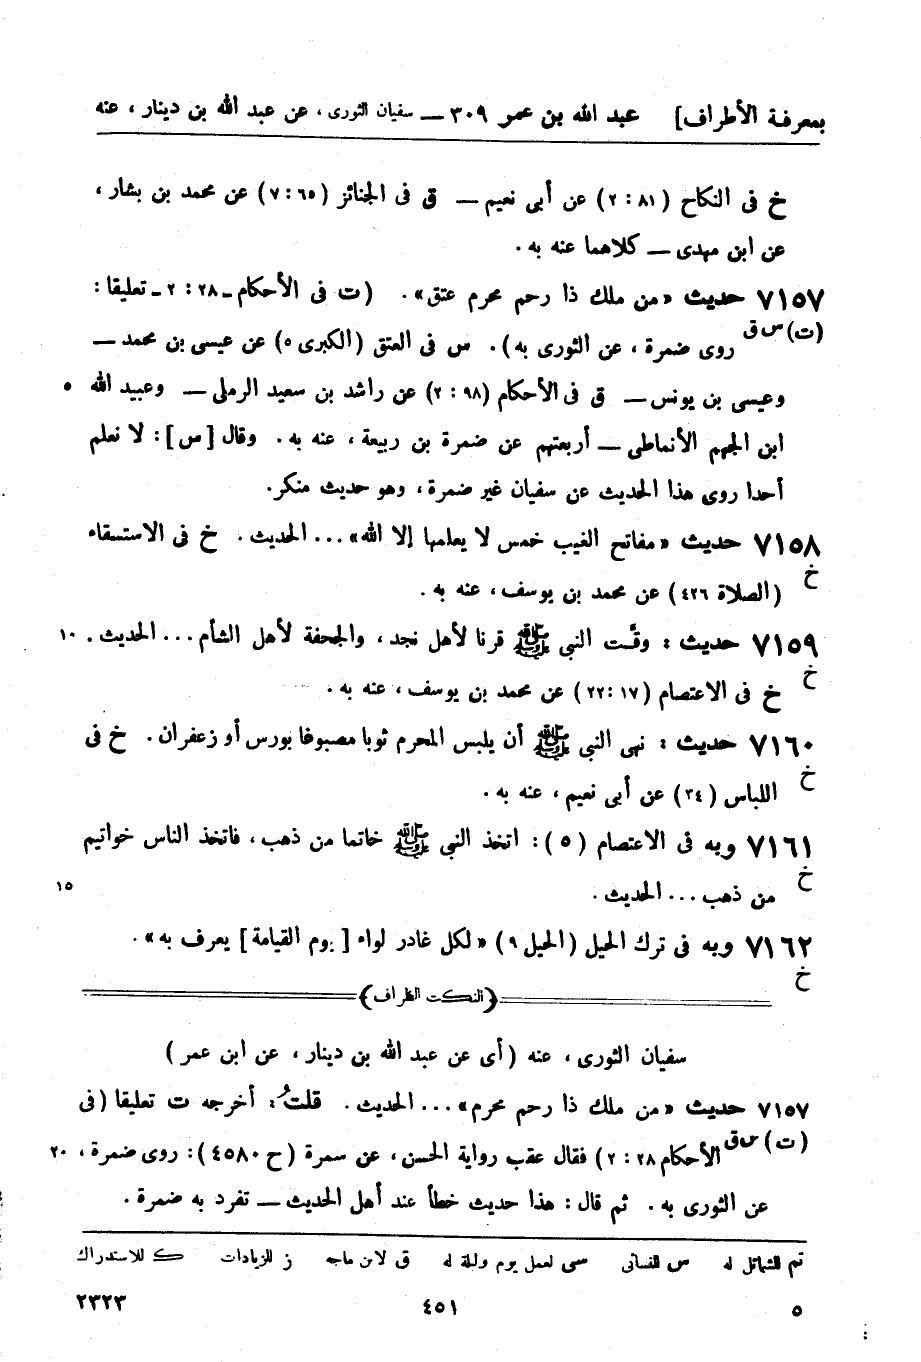 بمعرفة الأطراف] عبد الله بن عمر ٣٠٩ — سفيان الثورى ، عن عبد الله بن دينار ، عنه
خ فى النكاح (٨١ : ٢) عن أبى نعيم — ق فى الجنائز (٦٥ : ٧) عن محمد بن بشار ،
عن ابن مهدى — كلاهما عنه به .
٧١٥٧ حديث «من ملك ذا رحم محرم عتق» . (ت فى الأحكام ـ ٢٨ : ٢ ـ تعليقا :
(ت) س ق روى ضمرة ، عن الثورى به) . س فى العتق (الكبرى ٥) عن عيسى بن محمد —
وعيسى بن يونس — ق فى الأحكام (٩٨ : ٢) عن راشد بن سعيد الرملى — وعبيد الله ٥
ابن الجهم الأنماطى — أربعتهم عن ضمرة بن ربيعة ، عنه به . وقال [س] : لا نعلم
أحدا روى هذا الحديث عن سفيان غير ضمرة ، وهو حديث منكر.
٧١٥٨ حديث «مفاتح الغيب خمس لا يعلمها إلا الله» ... الحديث . خ فى الاستسقاء
خ (الصلاة ٤٢٦) عن محمد بن يوسف ، عنه به .
٧١٥٩ حديث : وقّت النبى ﷺ قرنا لأهل نجد ، والجحفة لأهل الشأم ... الحديث . ١٠
خ خ فى الاعتصام (١٧ : ٢٢) عن محمد بن يوسف ، عنه به .
٧١٦٠ حديث : نهى النبى ﷺ أن يلبس المحرم ثوبا مصبوغا بورس أو زعفران . خ فى
خ اللباس (٣٤) عن أبى نعيم ، عنه به .
٧١٦١ وبه فى الاعتصام (٥) : اتخذ النبى ﷺ خاتما من ذهب ، فاتخذ الناس خواتيم
خ من ذهب ... الحديث . ١٥
٧١٦٢ وبه فى ترك الحيل (الحيل ٩) «لكل غادر لواء [يوم القيامة] يعرف به» .
خ
(النكت الظراف)
سفيان الثورى ، عنه (أى عن عبد الله بن دينار ، عن ابن عمر)
٧١٥٧ حديث «من ملك ذا رحم محرم» ... الحديث . قلتُ : أخرجه ت تعليقا (فى
(ت) س ق الأحكام ٢٨ : ٢) فقال عقب رواية الحسن ، عن سمرة (ح ٤٥٨٠) : روى ضمرة ، ٢٠
عن الثورى به . ثم قال : هذا حديث خطأ عند أهل الحديث — تفرد به ضمرة .
تم للشمائل له س للنسائى سى لعمل يوم وليلة له ق لابن ماجه ز للزيادات ك للاستدراك
٥ ٤٥١ ٢٣٢٣